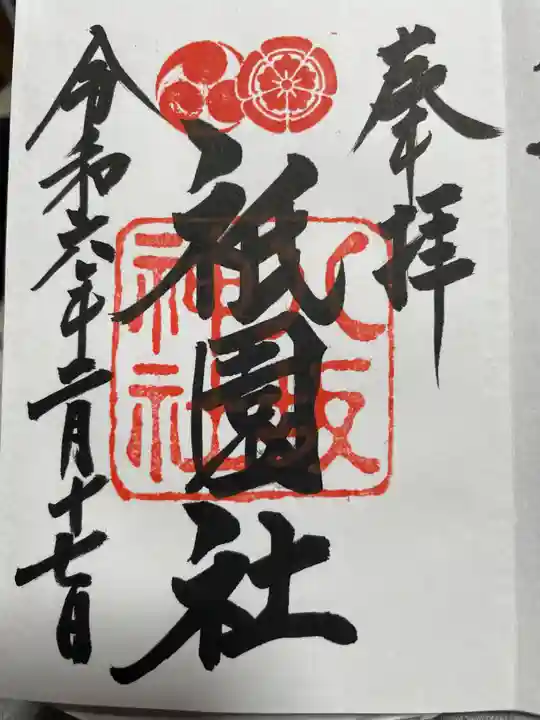 奉拝
八坂
神社
祇園社
令和六年二月十七日